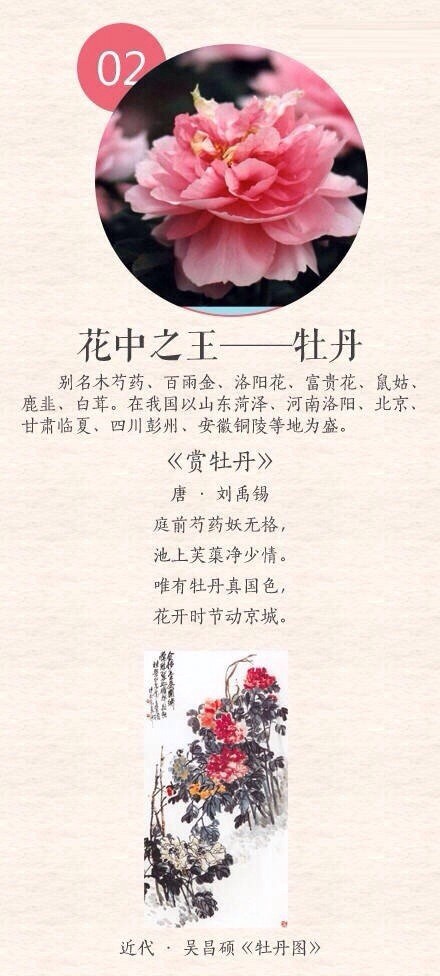 02
花中之王——牡丹
别名木芍药、百雨金、洛阳花、富贵花、鼠姑、
鹿韭、白茸。在我国以山东菏泽、河南洛阳、北京、
甘肃临夏、四川彭州、安徽铜陵等地为盛。
《赏牡丹》
唐 · 刘禹锡
庭前芍药妖无格，
池上芙蕖净少情。
唯有牡丹真国色，
花开时节动京城。
近代 · 吴昌硕《牡丹图》